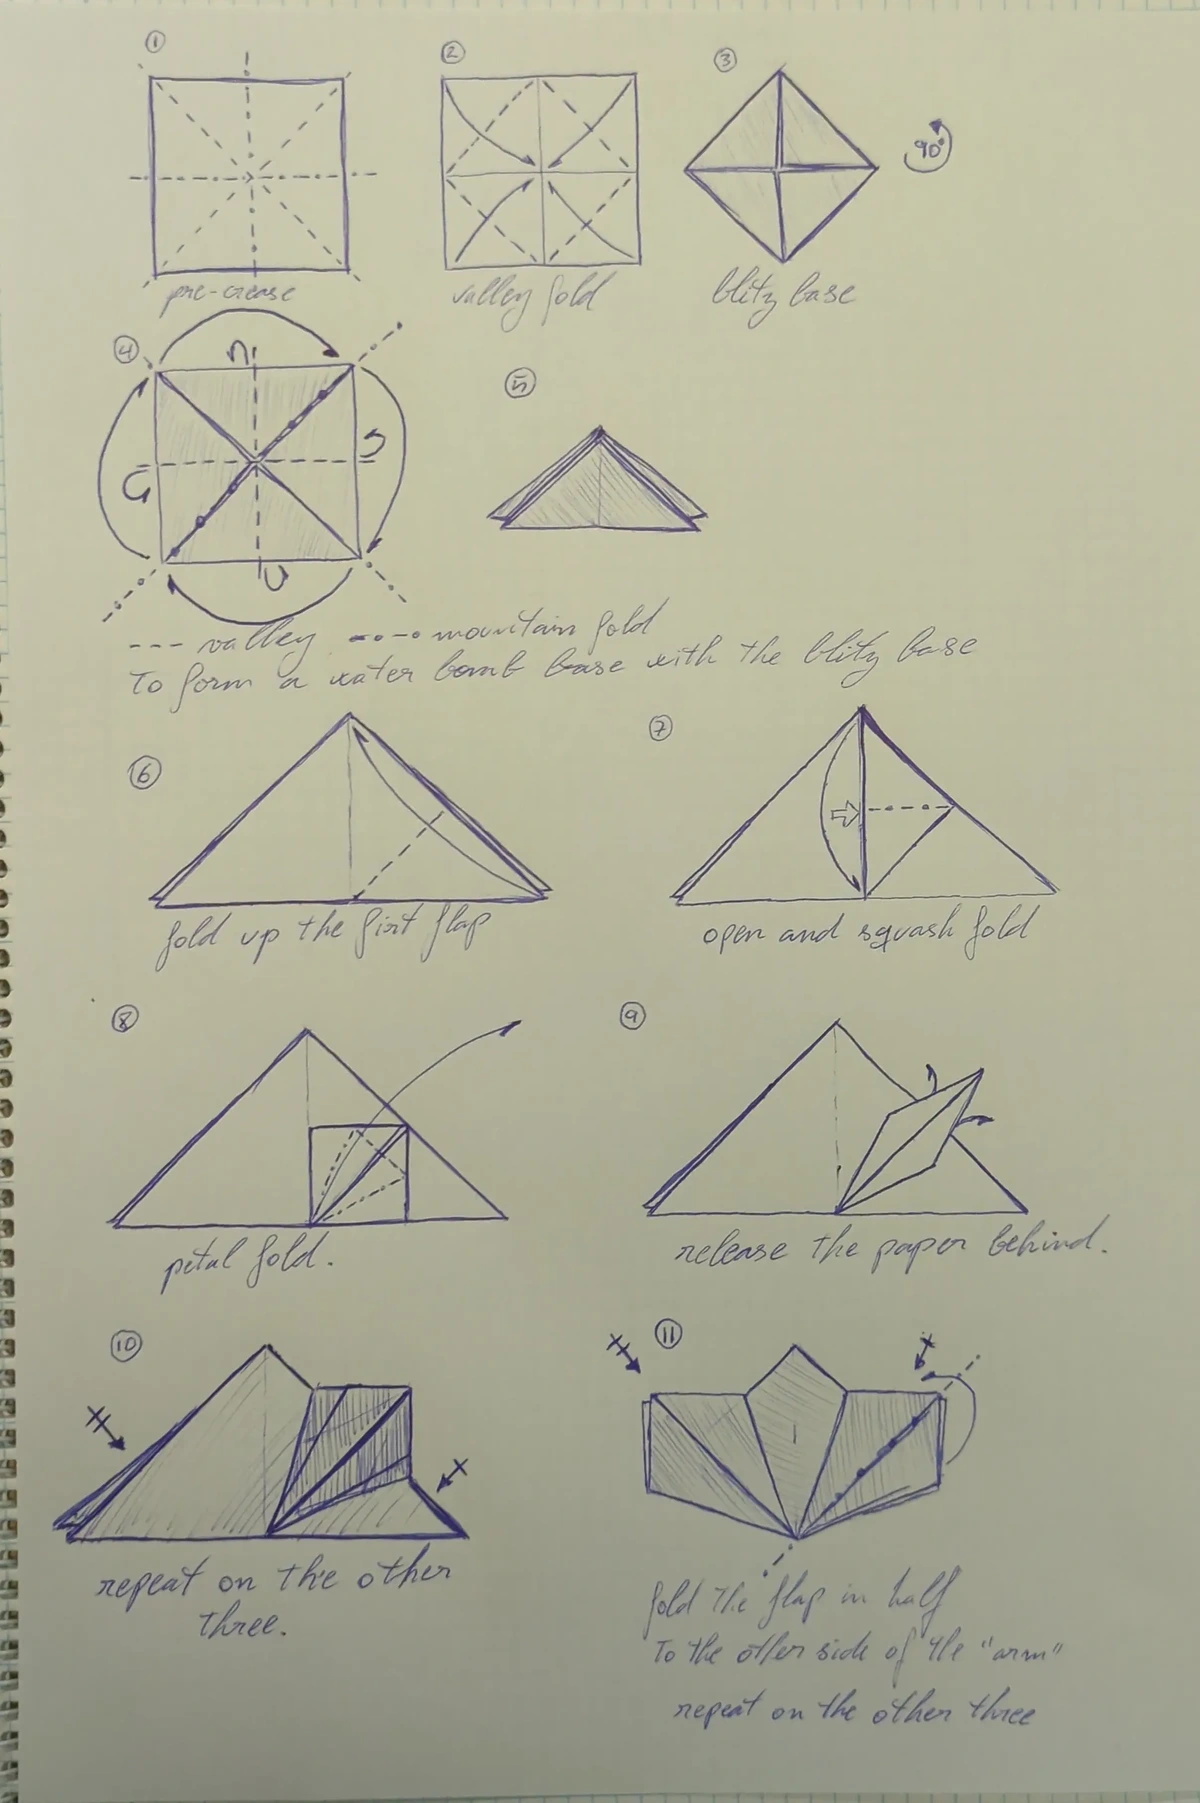 1
pre-crease
2
valley fold
3
90°
blitz base
4
5
--- valley -·-· mountain fold
To form a water bomb base with the blitz base
6
fold up the first flap
7
open and squash fold
8
petal fold.
9
release the paper behind.
10
repeat on the other
three.
11
fold the flap in half
To the other side of the "arm"
repeat on the other three